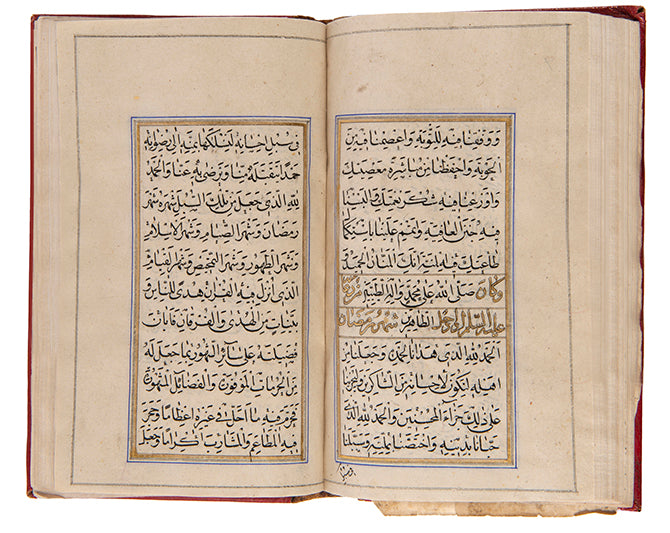 ووفقنا فيه للتوبة واعصمنا فيه من
الحوبة واحفظنا من مباشرة معصيتك
واوزعنا فيه شكر نعمتك والبسنا
فيه جنن العافية واتمم علينا باستكمال
طاعتك فيه المنة انك المنان الحميد
وكان صلى الله على محمد واله الطيبين من دعائه
عليه السلم اذا دخل الطاهرين شهر رمضان
الحمد لله الذي هدانا لحمده وجعلنا من
اهله لنكون لاحسانه من الشاكرين وليجزينا
على ذلك جزاء المحسنين والحمد لله الذي
حبانا بدينه واختصنا بملته وسبلنا
في سبل احسانه لنسلكها بمنه الى رضوانه
حمدا يتقبله منا ويرضى به عنا والحمد
لله الذي جعل من تلك السبل شهره شهر
رمضان وشهر الصيام وشهر الاسلام
وشهر الطهور وشهر التمحيص وشهر القيام
الذي انزل فيه القرآن هدى للناس و
بينات من الهدى والفرقان فابان
فضيلته على سائر الشهور بما جعل له
من الحرمات الموفورة والفضائل المشهورة
فحرم فيه ما احل في غيره اعظاما وحجر
فيه المطاعم والمشارب اكراما وجعل